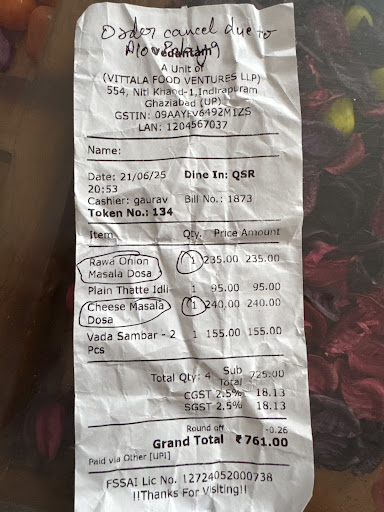 Order cancel due to
Vedantam
A Unit of
(VITTALA FOOD VENTURES LLP)
554, Niti Khand-1,Indirapuram
Ghaziabad (UP)
GSTIN: 09AAYFV6492MIZS
LAN: 1204567037
Name:
Date: 21/06/25 Dine In: QSR
20:53
Cashier: gaurav Bill No.: 1873
Token No.: 134
Item Qty. Price Amount
Rawa Onion 1 235.00 235.00
Masala Dosa
Plain Thatte Idli 1 95.00 95.00
Cheese Masala 1 240.00 240.00
Dosa
Vada Sambar - 2 1 155.00 155.00
Pcs
Total Qty: 4 Sub Total 725.00
CGST 2.5% 18.13
SGST 2.5% 18.13
Round off -0.26
Grand Total ₹761.00
Paid via Other [UPI]
FSSAI Lic No. 12724052000738
!!Thanks For Visiting!!